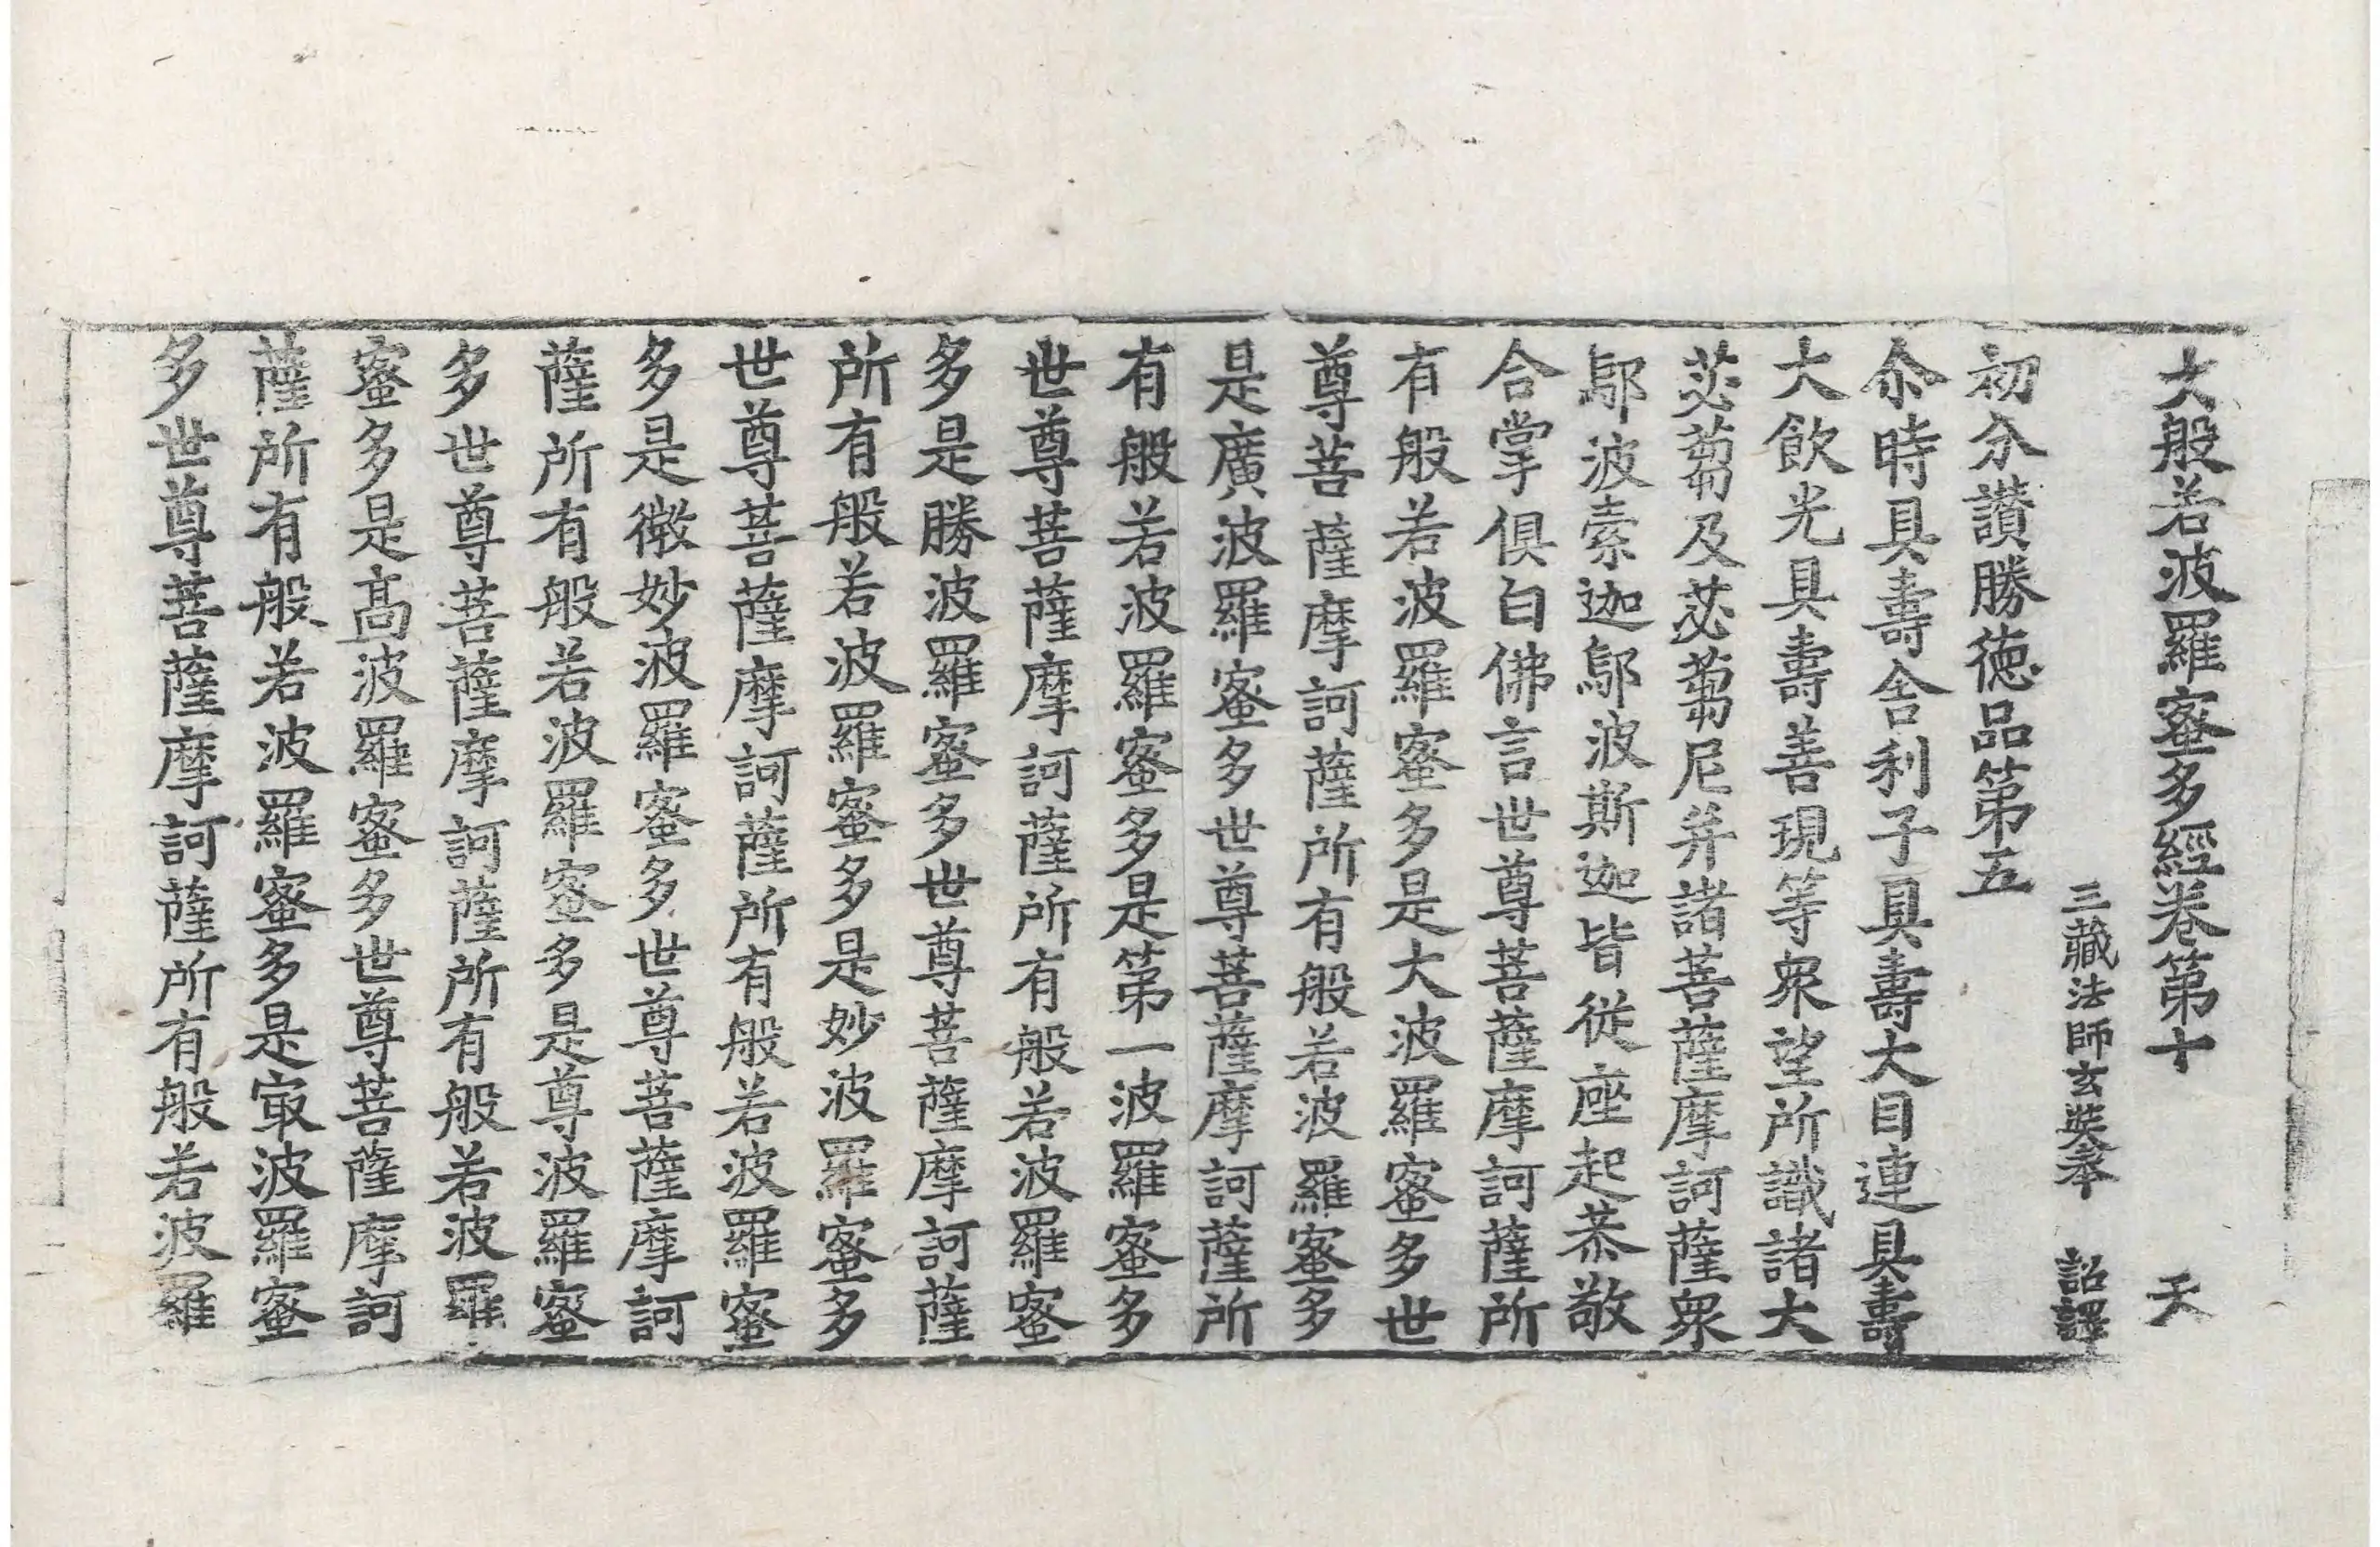 大般若波羅蜜多經卷第十 天
三藏法師玄奘奉 詔譯
初分讃勝德品第五
尒時具壽舍利子具壽大目連具壽
大飲光具壽善現等衆望所識諸大
苾蒭及苾蒭尼并諸菩薩摩訶薩衆
鄔波索迦鄔波斯迦皆從座起恭敬
合掌俱白佛言世尊菩薩摩訶薩所
有般若波羅蜜多是大波羅蜜多世
尊菩薩摩訶薩所有般若波羅蜜多
是廣波羅蜜多世尊菩薩摩訶薩所
有般若波羅蜜多是第一波羅蜜多
世尊菩薩摩訶薩所有般若波羅蜜
多是勝波羅蜜多世尊菩薩摩訶薩
所有般若波羅蜜多是妙波羅蜜多
世尊菩薩摩訶薩所有般若波羅蜜
多是微妙波羅蜜多世尊菩薩摩訶
薩所有般若波羅蜜多是尊波羅蜜
多世尊菩薩摩訶薩所有般若波羅
蜜多是高波羅蜜多世尊菩薩摩訶
薩所有般若波羅蜜多是㝡波羅蜜
多世尊菩薩摩訶薩所有般若波羅